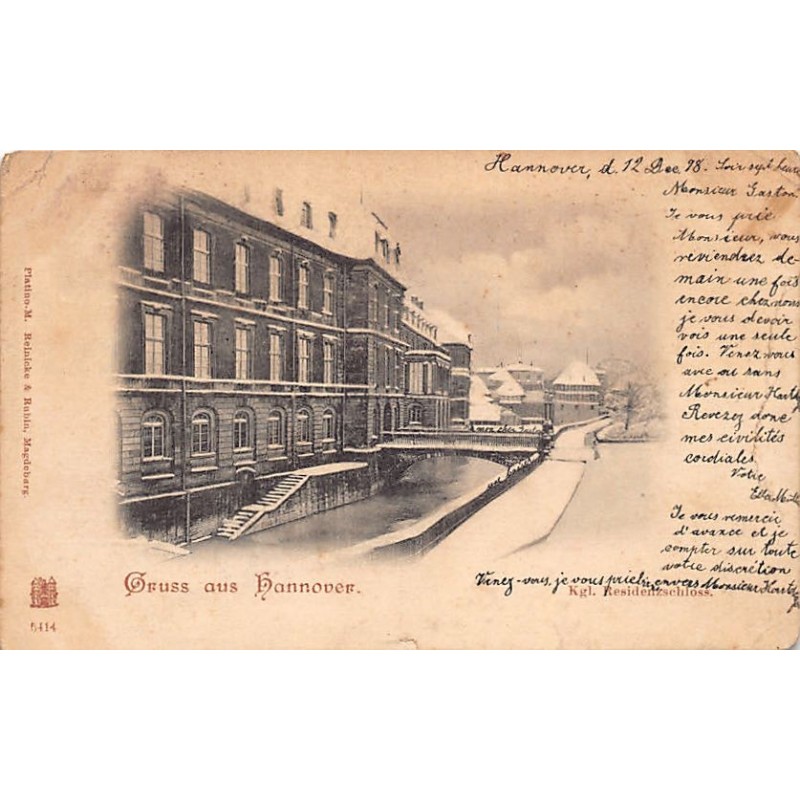 Hannover, d. 12 Dec 98. Soir sept heure
Monsieur Gaston.
Je vous prie
Monsieur, vous
reviendrez de-
main une fois
encore chez nous
je vous devoir
vois une seule
fois. Venez vous
avec ou sans
Monsieur
Revezez donc
mes civilités
cordiales
Votre
Ella
Je vous remercir
d'avance et je
compter sur toute
votre discrétion
envers Monsieur
Venez-vous, je vous prie
Gruss aus Hannover.
Kgl. Residenzschloss.
Platino-M. Reinicke & Rubin, Magdeburg.
6414